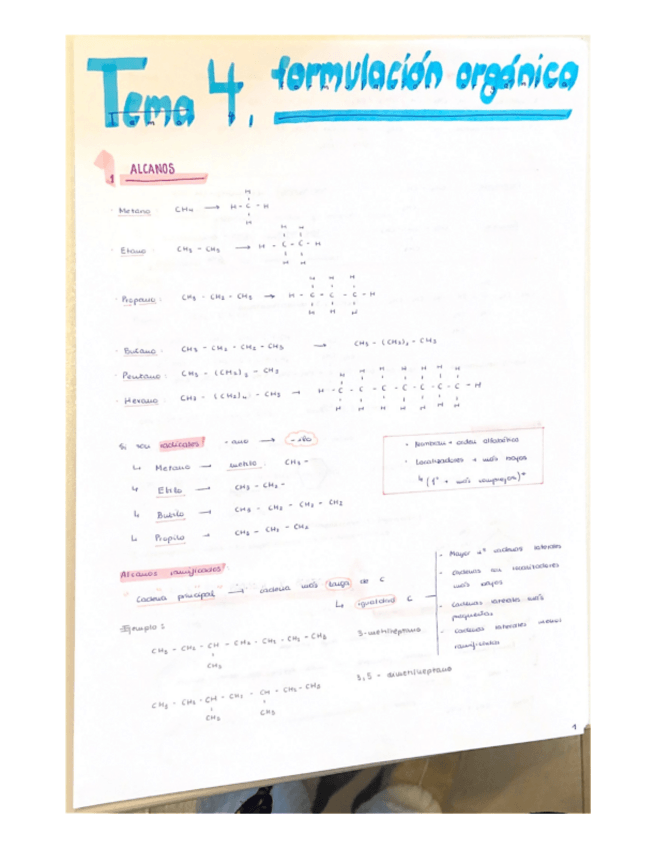 Tema 4. formulación orgánica
1 ALCANOS
· Metano: CH4 → H - C - H
H
H
· Etano: CH3 - CH3 → H - C - C - H
H H
H H
· Propano: CH3 - CH2 - CH3 → H - C - C - C - H
H H H
H H H
· Butano: CH3 - CH2 - CH2 - CH3 → CH3 - (CH2)2 - CH3
· Pentano: CH3 - (CH2)3 - CH3
· Hexano: CH3 - (CH2)4 - CH3 → H - C - C - C - C - C - C - H
H H H H H H
H H H H H H
Si son radicales: -ano → -ilo
↳ Metano → metilo: CH3 -
↳ Etilo → CH3 - CH2 -
↳ Butilo → CH3 - CH2 - CH2 - CH2
↳ Propilo → CH3 - CH2 - CH2
· Nombrar → orden alfabético
· Localizadores → más bajos
↳ (1º + más complejos)*
Alcanos ramificados:
Cadena principal → cadena más larga de C
↳ igualdad C
- Mayor nº cadenas laterales
- cadenas con localizadores
más bajos
- cadenas laterales más
pequeñas.
- cadenas laterales menos
ramificadas
Ejemplo:
CH3 - CH2 - CH - CH2 - CH2 - CH2 - CH3 3-metilheptano
CH3
CH3 - CH2 - CH - CH2 - CH - CH2 - CH3 3,5 - dimetilheptano
CH3 CH3
1